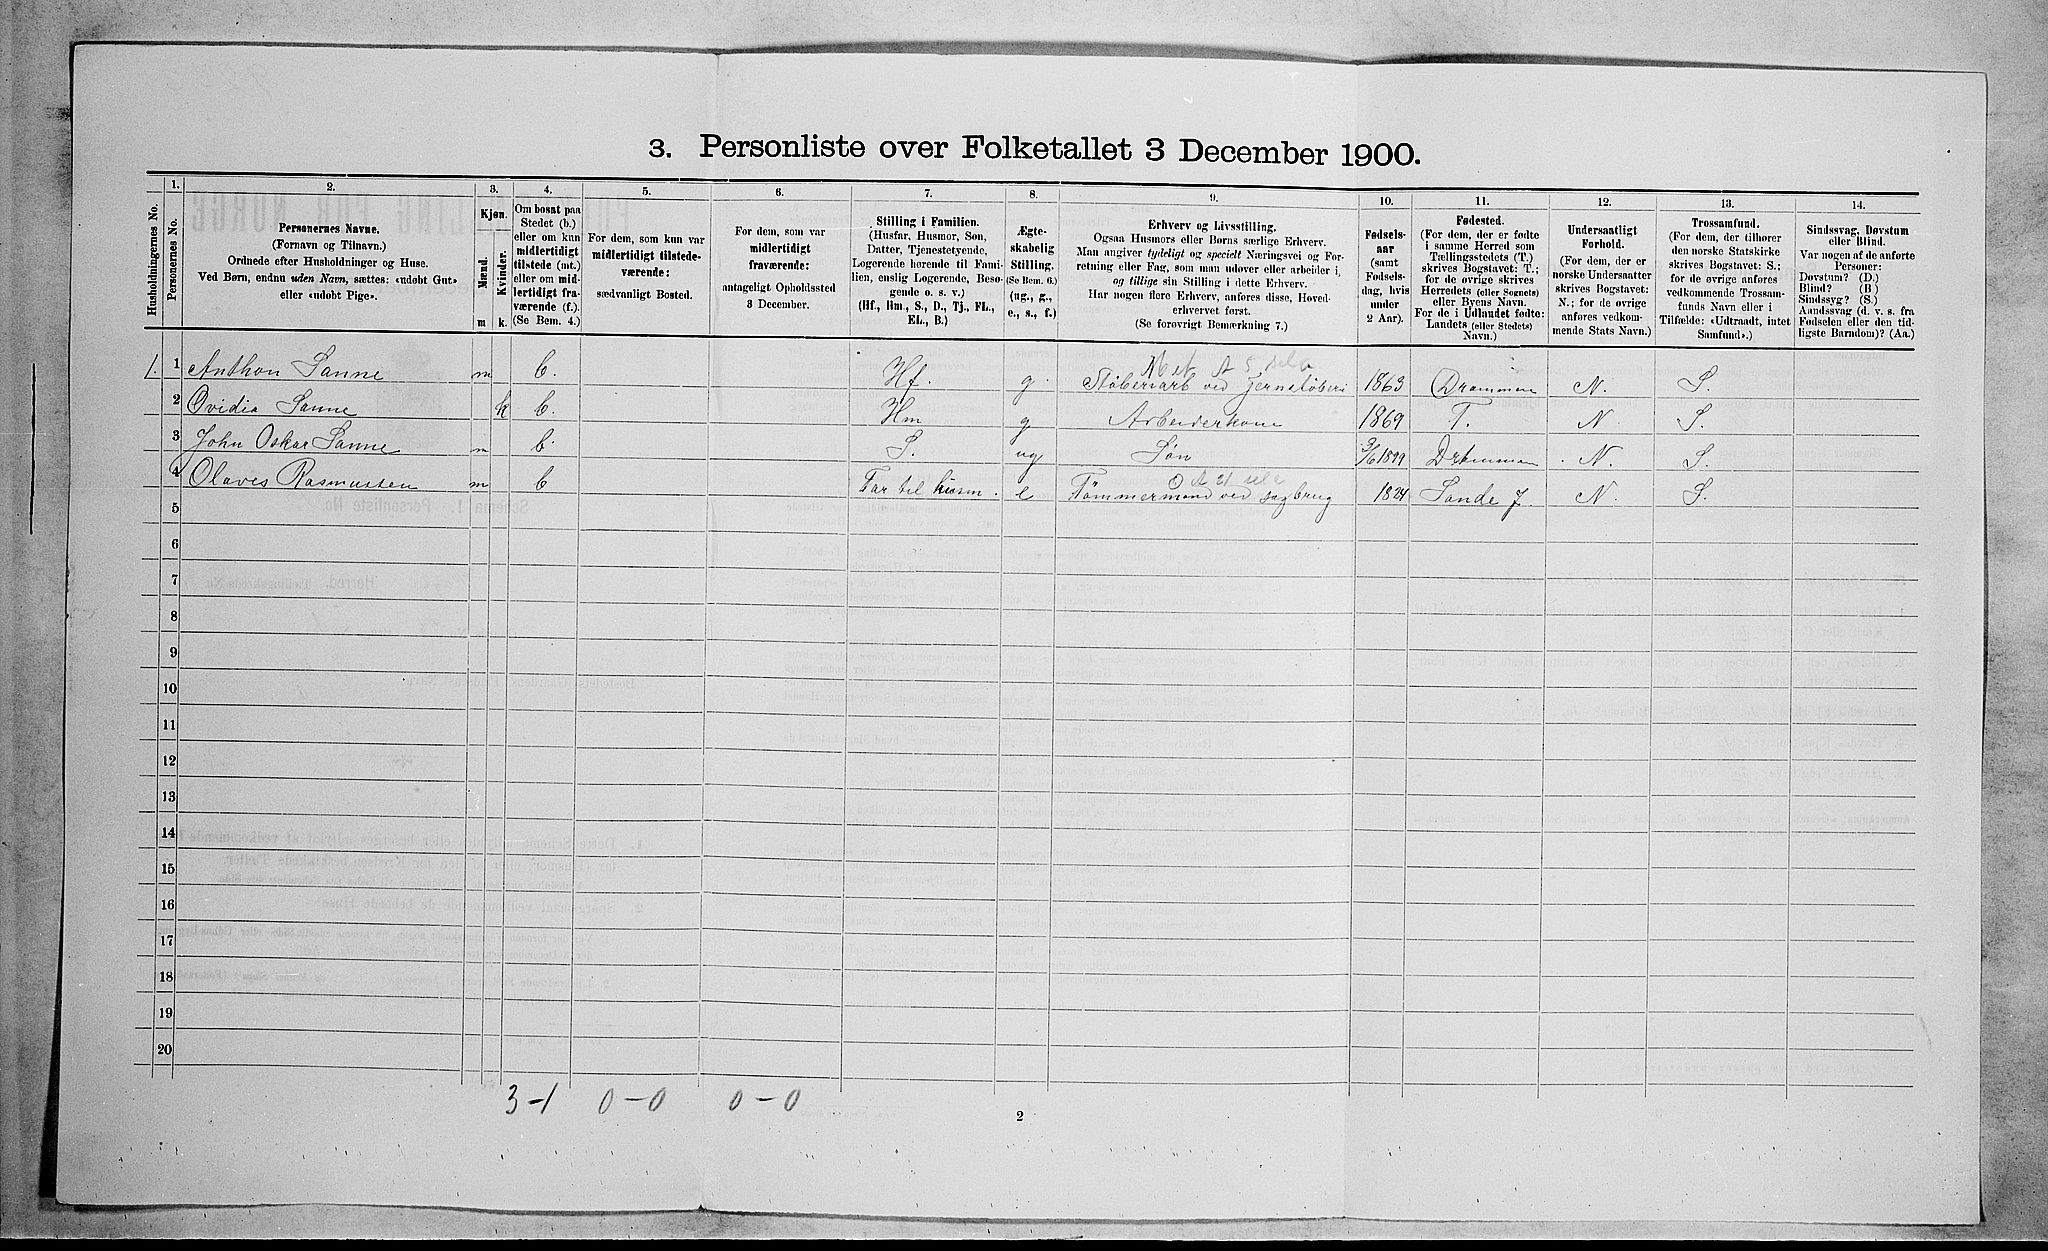 3. Personliste over Folketallet 3 December 1900.
1. 2. 3. 4. 5. 6. 7. 8. 9. 10. 11. 12. 13. 14.
Husholdningernes No.
Personernes No.
Personernes Navne.
(Fornavn og Tilnavn.)
Ordnede efter Husholdninger og Huse.
Ved Børn, endnu uden Navn, sættes: «udøbt Gut»
eller «udøbt Pige».
Kjøn.
Mænd.
Kvinder.
m k.
Om bosat paa
Stedet (b.)
eller om kun
midlertidigt
tilstede (mt.)
eller om mid-
lertidigt fra-
værende (f.).
(Se Bem. 4.)
For dem, som kun var
midlertidigt tilstede-
værende:
sædvanligt Bosted.
For dem, som var
midlertidigt
fraværende:
antageligt Opholdssted
3 December.
Stilling i Familien.
(Husfar, Husmor, Søn,
Datter, Tjenestetyende,
Logerende hørende til Fami-
lien, enslig Logerende, Besø-
gende o. s. v.)
(Hf., Hm., S., D., Tj., FL.,
EL., B.)
Ægte-
skabelig
Stilling.
(Se Bem. 6.)
(ug., g.,
e., s., f.)
Erhverv og Livsstilling.
Ogsaa Husmors eller Børns særlige Erhverv.
Man angiver tydeligt og specielt Næringsvei og For-
retning eller Fag, som man udøver eller arbeider i,
og tillige sin Stilling i dette Erhverv.
Har nogen flere Erhverv, anføres disse, Hoved-
erhvervet først.
(Se forøvrigt Bemærkning 7.)
Fødsels-
aar
(samt
Fødsels-
dag, hvis
under
2 Aar).
Fødested.
(For dem, der er fødte
i samme Herred som
Tællingsstedets (T.)
skrives Bogstavet: T.;
for de øvrige skrives
Herredets (eller Sognets)
eller Byens Navn.
For de i Udlandet fødte:
Landets (eller Stedets)
Navn.)
Undersaatligt
Forhold.
(For dem, der er
norske Undersaatter
skrives Bogstavet:
N.; for de øvrige
anføres vedkom-
mende Stats Navn.)
Trossamfund.
(For dem, der tilhører
den norske Statskirke
skrives Bogstavet: S.;
for de øvrige anføres
vedkommende Trossam-
funds Navn eller i
Tilfælde: «Udtraadt, intet
Samfund».)
Sindssvag, Døvstum
eller Blind.
Var nogen af de anførte
Personer:
Døvstum? (D.)
Blind? (B.)
Sindssyg? (S.)
Aandssvag (d. v. s. fra
Fødselen eller den tid-
ligste Barndom)? (Aa.)
1. 1 Anthon Sanne m b. Hf. g. Støberiarb ved Jernstøberi 1863 Drammen N. S.
2 Ovidia Sanne k b. Hm g Arbeiderkone 1869 T. N S.
3 John Oskar Sanne m b. S. ug Søn 3/6 1899 Drammen N. S.
4 Olaves Rasmussen m b Far til husm. e Tømmermand ved sagbrug 1824 Sande J. N. S.
5
6
7
8
9
10
11
12
13
14
15
16
17
18
19
20
3-1 0-0 0-0
2